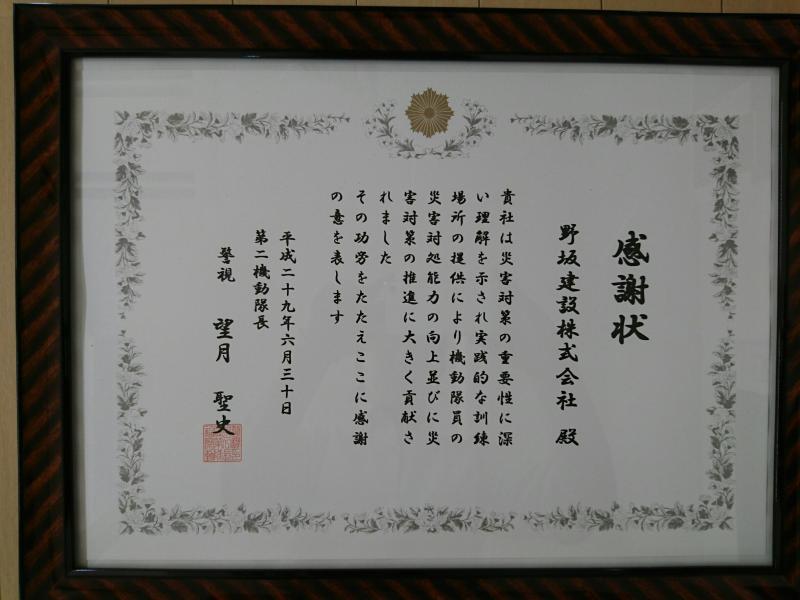 感謝状
野坂建設株式会社 殿
貴社は災害対策の重要性に深
い理解を示され実践的な訓練
場所の提供により機動隊員の
災害対処能力の向上並びに災
害対策の推進に大きく貢献さ
れました
その功労をたたえここに感謝
の意を表します
平成二十九年六月三十日
第二機動隊長
警視 望月 聖史